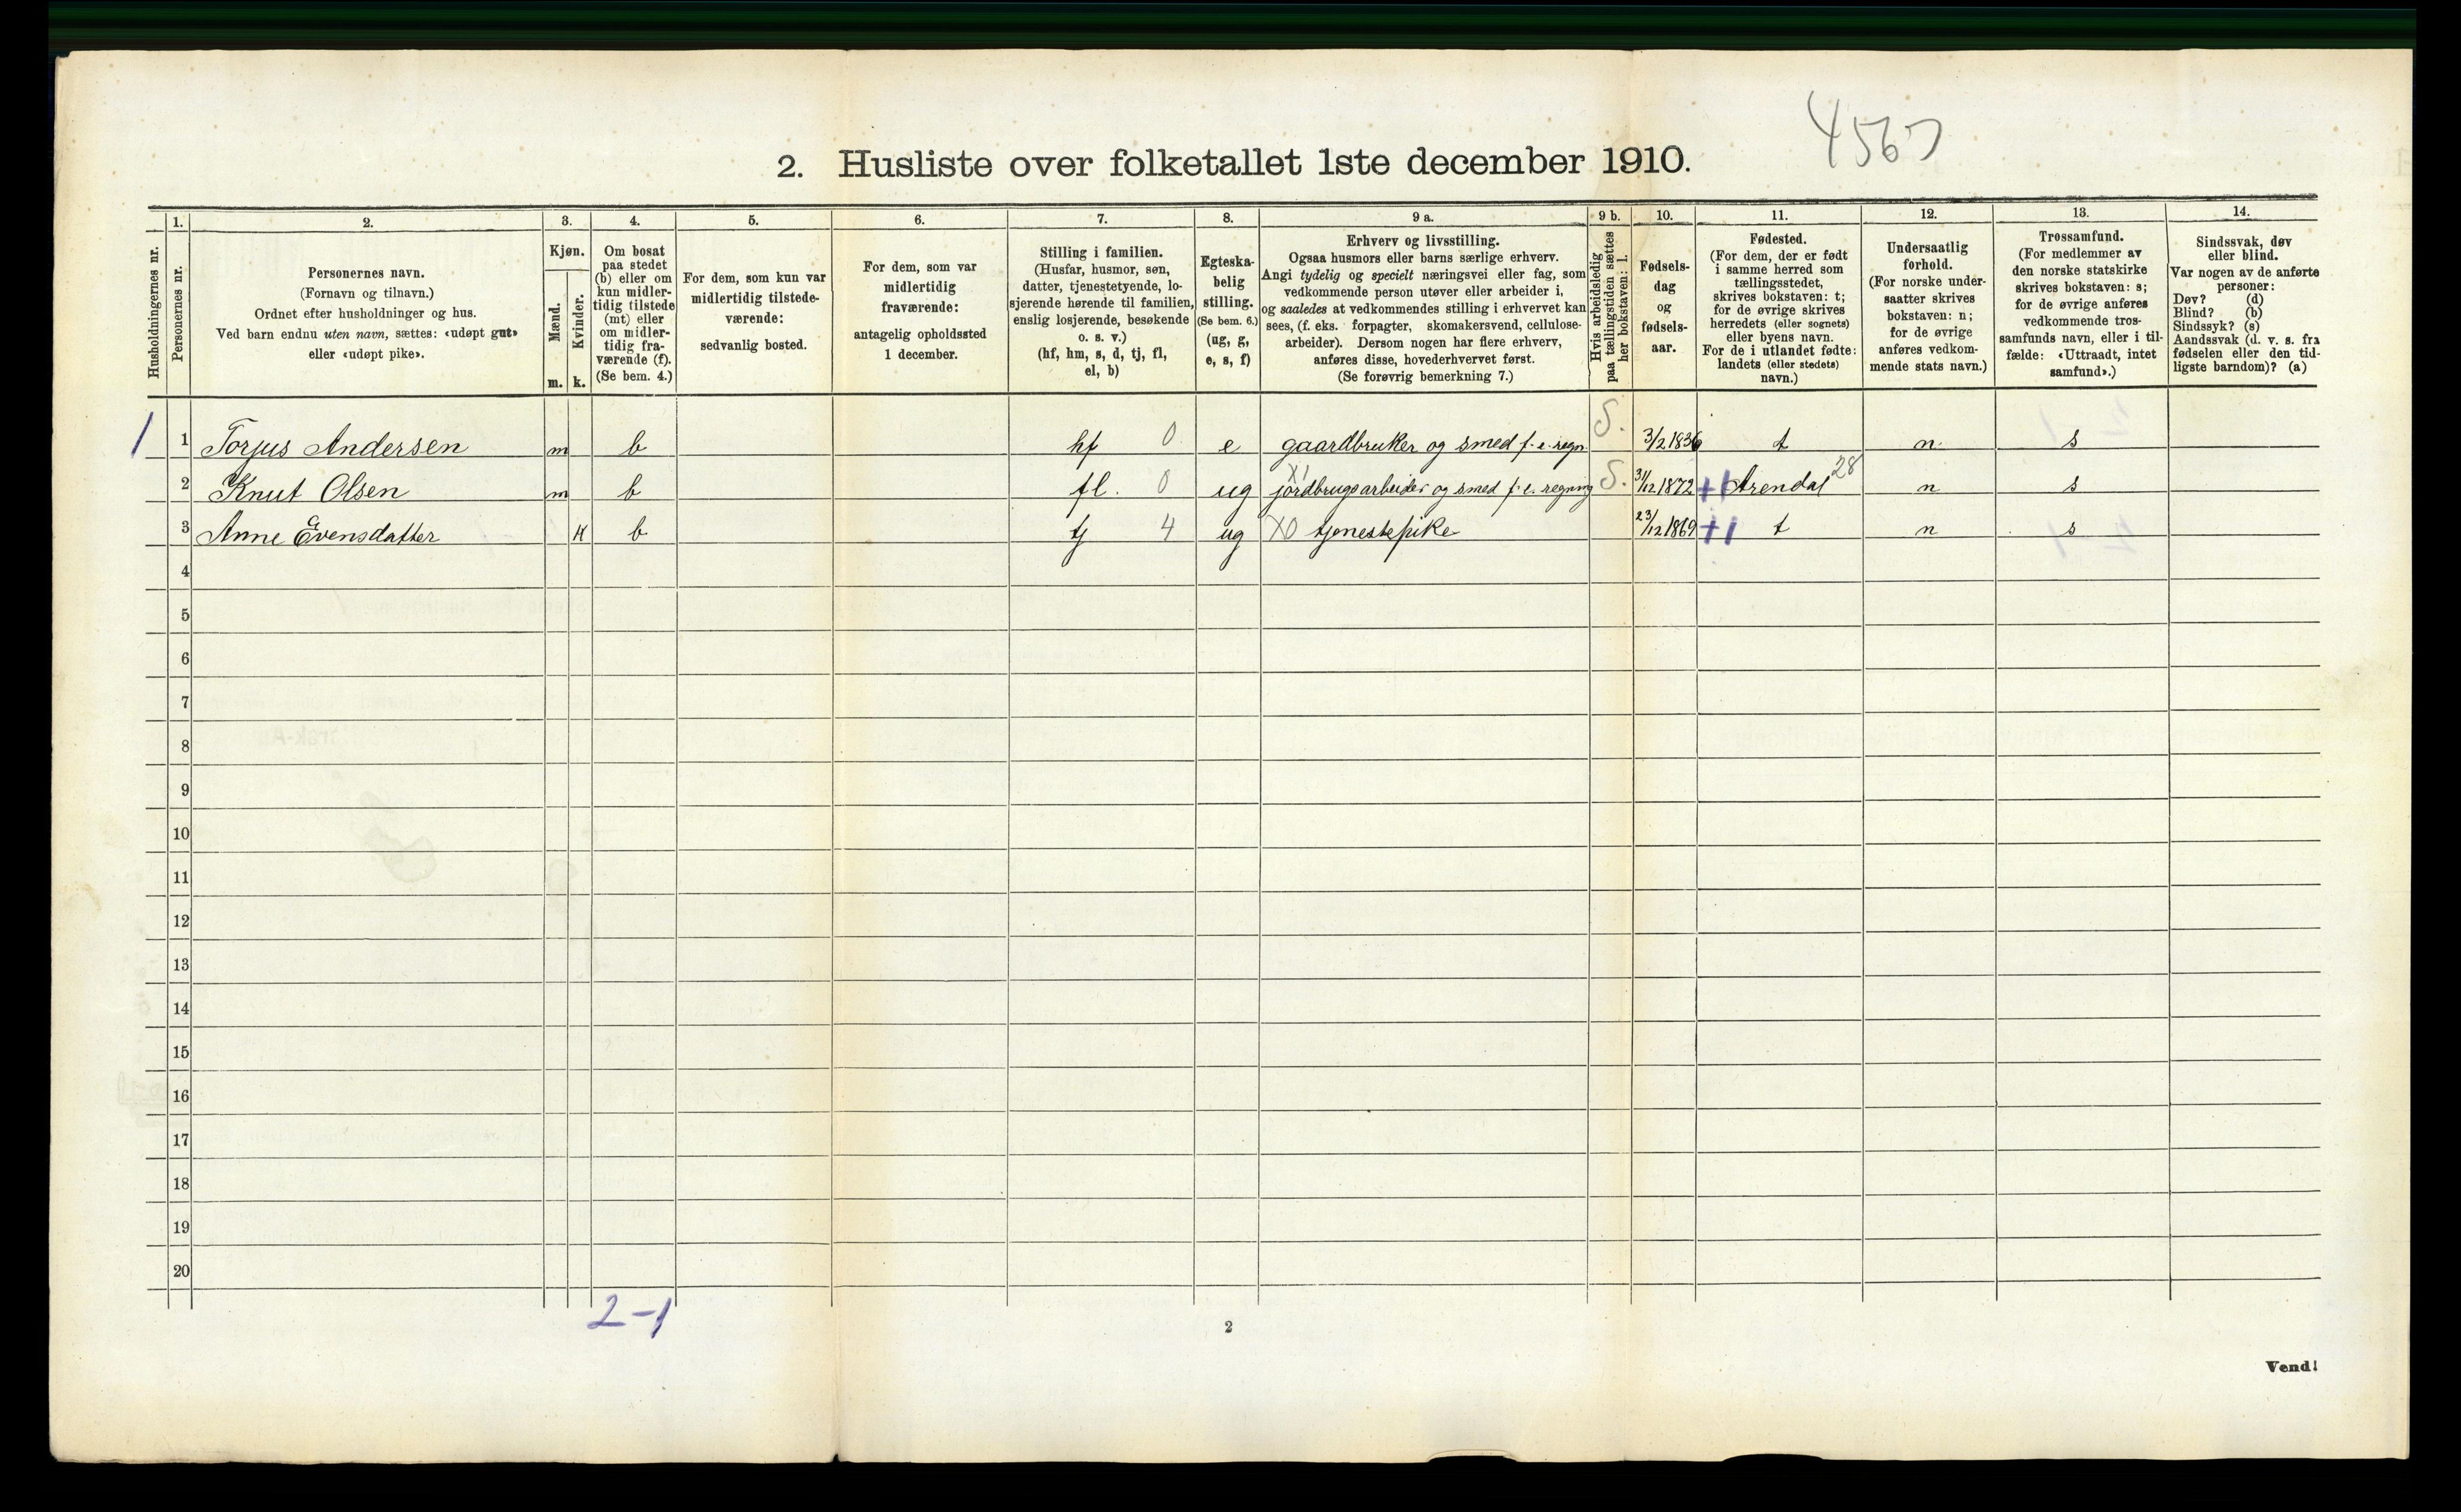 4567
2. Husliste over folketallet 1ste december 1910.
Husholdningernes nr.
1.
Personernes nr.
2.
Personernes navn.
(Fornavn og tilnavn.)
Ordnet efter husholdninger og hus.
Ved barn endnu uten navn, sættes: «udøpt gut»
eller «udøpt pike».
3.
Kjøn.
Mænd.
Kvinder.
m. k.
4.
Om bosat
paa stedet
(b) eller om
kun midler-
tidig tilstede
(mt) eller
om midler-
tidig fra-
værende (f).
(Se bem. 4.)
5.
For dem, som kun var
midlertidig tilstede-
værende:
sedvanlig bosted.
6.
For dem, som var
midlertidig
fraværende:
antagelig opholdssted
1 december.
7.
Stilling i familien.
(Husfar, husmor, søn,
datter, tjenestetyende, lo-
sjerende hørende til familien,
enslig losjerende, besøkende
o. s. v.)
(hf, hm, s, d, tj, fl,
el, b)
8.
Egteska-
belig
stilling.
(Se bem. 6.)
(ug, g,
e, s, f)
9 a.
Erhverv og livsstilling.
Ogsaa husmors eller barns særlige erhverv.
Angi tydelig og specielt næringsvei eller fag, som
vedkommende person utøver eller arbeider i,
og saaledes at vedkommendes stilling i erhvervet kan
sees, (f. eks. forpagter, skomakersvend, cellulose-
arbeider). Dersom nogen har flere erhverv,
anføres disse, hovederhvervet først.
(Se forøvrig bemerkning 7.)
9 b.
Hvis arbeidsledig
paa tællingstiden sættes
her bokstaven: l.
10.
Fødsels-
dag
og
fødsels-
aar.
11.
Fødested.
(For dem, der er født
i samme herred som
tællingsstedet,
skrives bokstaven: t;
for de øvrige skrives
herredets (eller sognets)
eller byens navn.
For de i utlandet fødte:
landets (eller stedets)
navn.)
12.
Undersaatlig
forhold.
(For norske under-
saatter skrives
bokstaven: n;
for de øvrige
anføres vedkom-
mende stats navn.)
13.
Trossamfund.
(For medlemmer av
den norske statskirke
skrives bokstaven: s;
for de øvrige anføres
vedkommende tros-
samfunds navn, eller i til-
fælde: «Uttraadt, intet
samfund».)
14.
Sindssvak, døv
eller blind.
Var nogen av de anførte
personer:
Døv? (d)
Blind? (b)
Sindssyk? (s)
Aandssvak (d. v. s. fra
fødselen eller den tid-
ligste barndom)? (a)
1 1 Torjus Andersen m b hf 0 e gaardbruker og smed f. e. regn. S. 3/2 1836 t n s
2 Knut Olsen m b fl. 0 ug X1 jordbrugsarbeider og smed f. e. regning S. 31/12 1872 +1 Arendal 28 n s
3 Anne Evensdatter K b tj 4 ug XO tjenestepike 23/12 1869 +1 t n s
4
5
6
7
8
9
10
11
12
13
14
15
16
17
18
19
20
2-1
2
Vend!